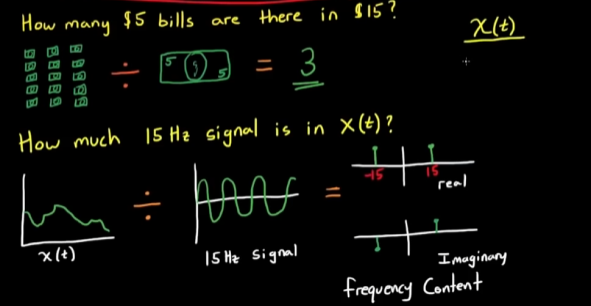 How many $5 bills are there in $15?
X(t)
÷ 5 5 = 3
How much 15 Hz signal is in X(t)?
÷ =
-15 15
real
x(t)
15 Hz signal
Imaginary
frequency Content